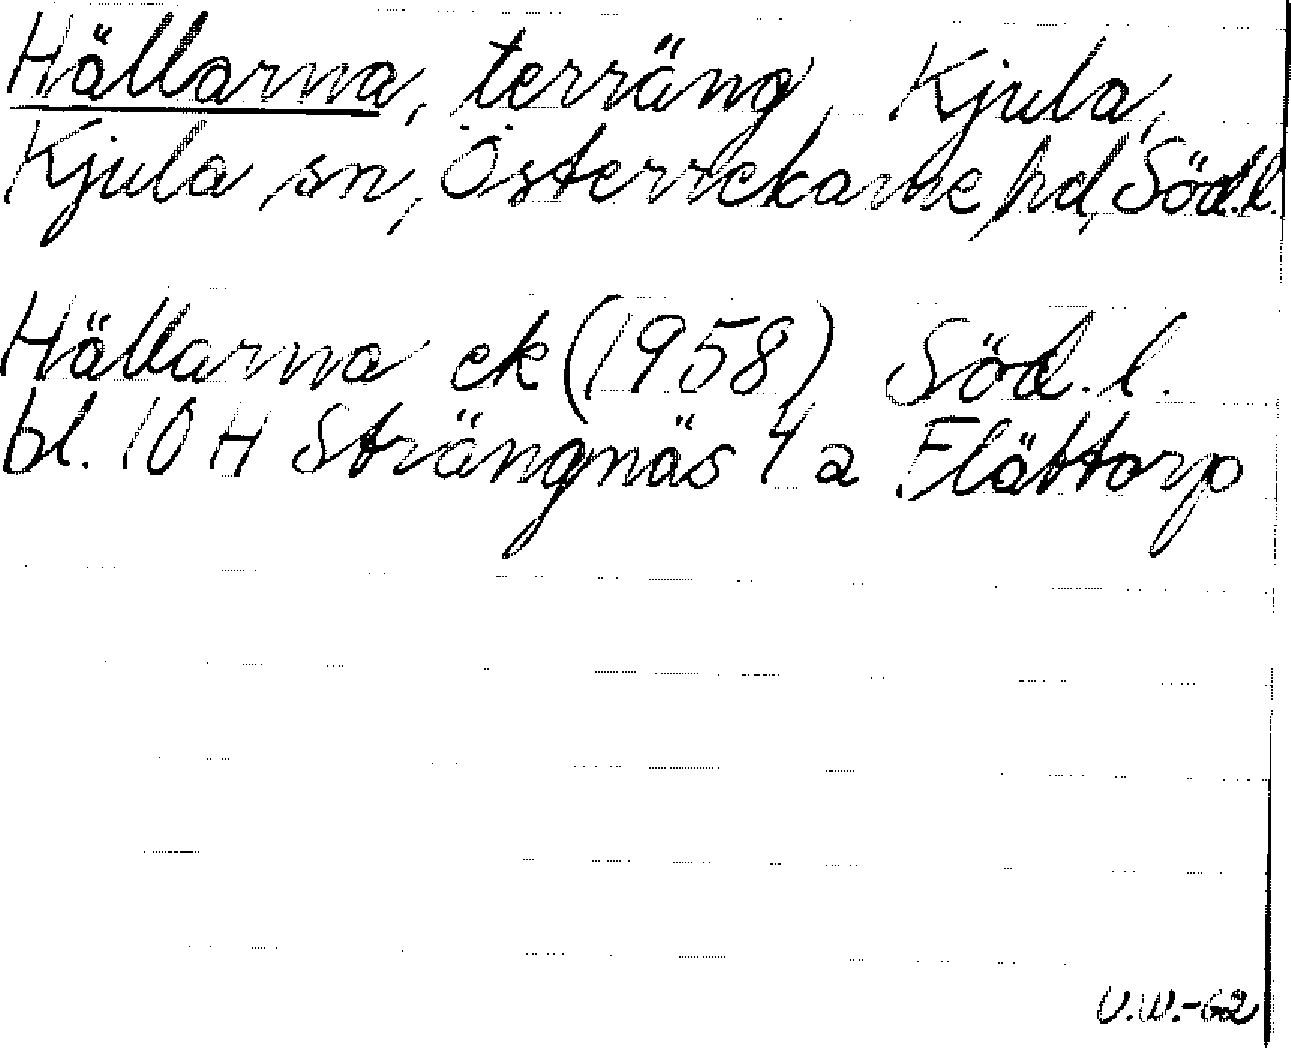 Hällarna, terräng, Kjula,
Kjula sn, Österrekarne hd, Söd.l.
Hällarna ek (1958) Söd.l.
bl. 10 H Strängnäs 4 a Flättorp
V.W.-62